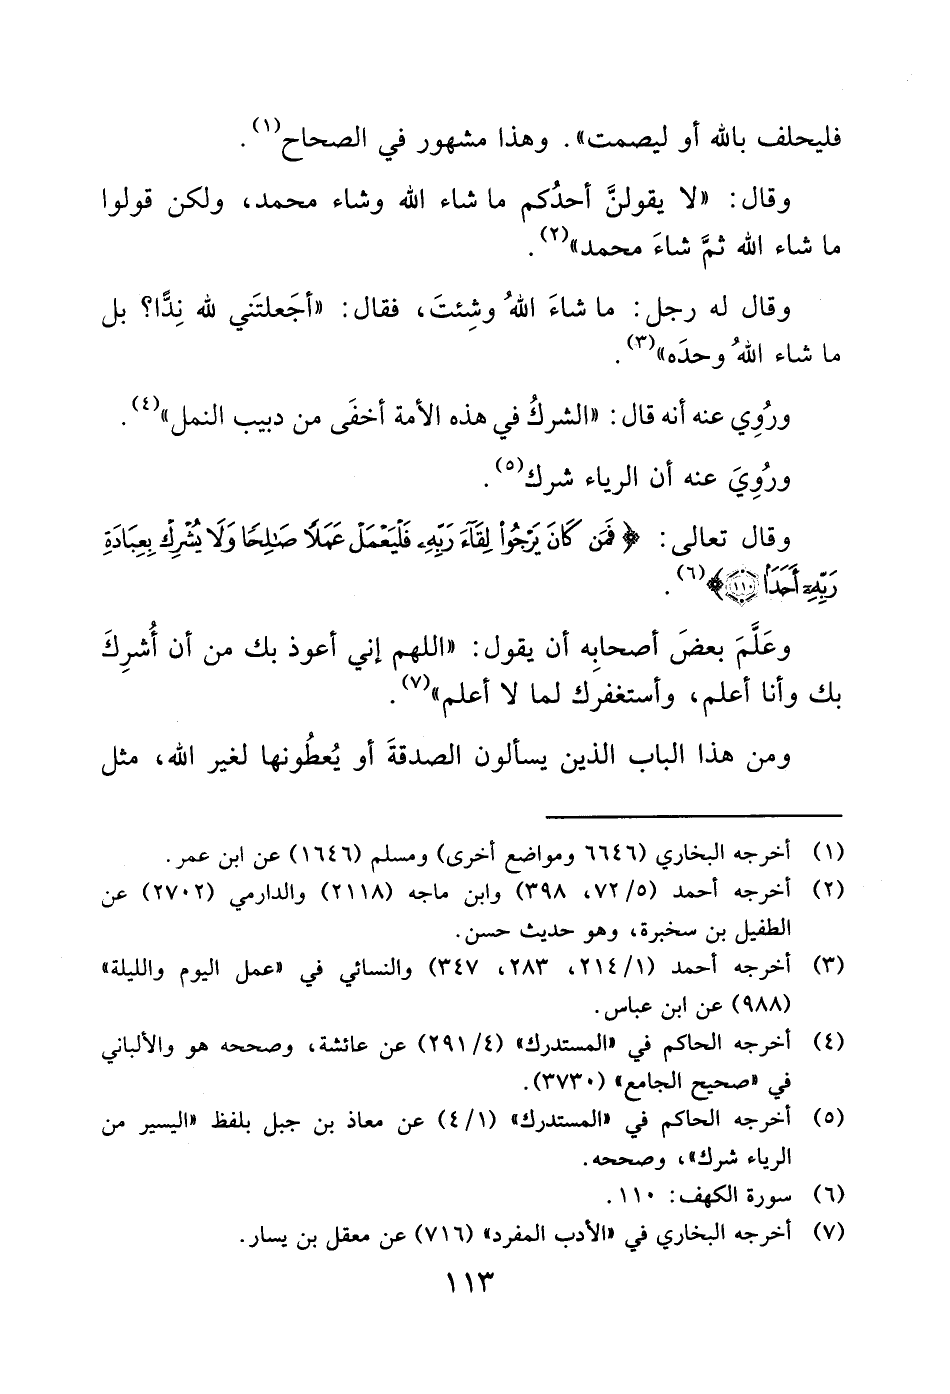 فليحلف بالله أو ليصمت». وهذا مشهور في الصحاح(١).
وقال: «لا يقولنَّ أحدُكم ما شاء الله وشاء محمد، ولكن قولوا
ما شاء الله ثمَّ شاءَ محمد»(٢).
وقال له رجل: ما شاءَ اللهُ وشِئتَ، فقال: «أجَعلتَني لله نِدًّا؟ بل
ما شاء اللهُ وحدَه»(٣).
ورُوِي عنه أنه قال: «الشركُ في هذه الأمة أخفَى من دبيب النمل»(٤).
ورُوِيَ عنه أن الرياء شرك(٥).
وقال تعالى: ﴿فَمَن كَانَ يَرْجُوا۟ لِقَآءَ رَبِّهِۦ فَلْيَعْمَلْ عَمَلًا صَـٰلِحًا وَلَا يُشْرِكْ بِعِبَادَةِ
رَبِّهِۦٓ أَحَدَۢا ١١٠﴾(٦).
وعَلَّمَ بعضَ أصحابِه أن يقول: «اللهم إني أعوذ بك من أن أُشرِكَ
بك وأنا أعلم، وأستغفرك لما لا أعلم»(٧).
ومن هذا الباب الذين يسألون الصدقةَ أو يُعطُونها لغير الله، مثل
(١) أخرجه البخاري (٦٦٤٦ ومواضع أخرى) ومسلم (١٦٤٦) عن ابن عمر.
(٢) أخرجه أحمد (٧٢/٥، ٣٩٨) وابن ماجه (٢١١٨) والدارمي (٢٧٠٢) عن
الطفيل بن سخبرة، وهو حديث حسن.
(٣) أخرجه أحمد (٢١٤/١، ٢٨٣، ٣٤٧) والنسائي في «عمل اليوم والليلة»
(٩٨٨) عن ابن عباس.
(٤) أخرجه الحاكم في «المستدرك» (٢٩١/٤) عن عائشة، وصححه هو والألباني
في «صحيح الجامع» (٣٧٣٠).
(٥) أخرجه الحاكم في «المستدرك» (٤/١) عن معاذ بن جبل بلفظ «اليسير من
الرياء شرك»، وصححه.
(٦) سورة الكهف: ١١٠.
(٧) أخرجه البخاري في «الأدب المفرد» (٧١٦) عن معقل بن يسار.
١١٣